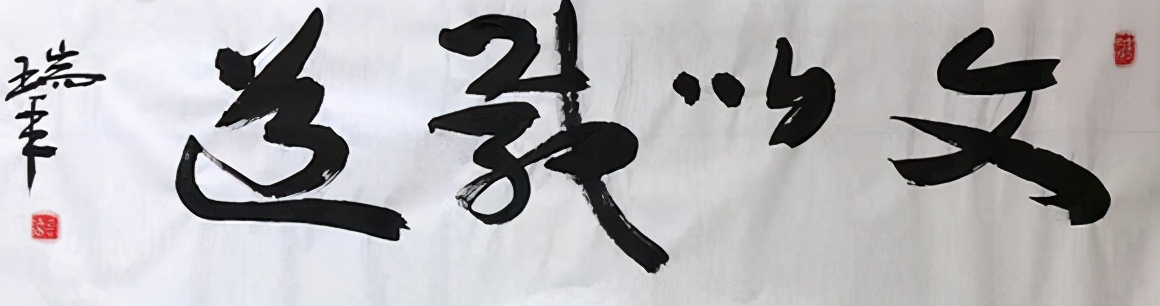 文以载道
瑞军